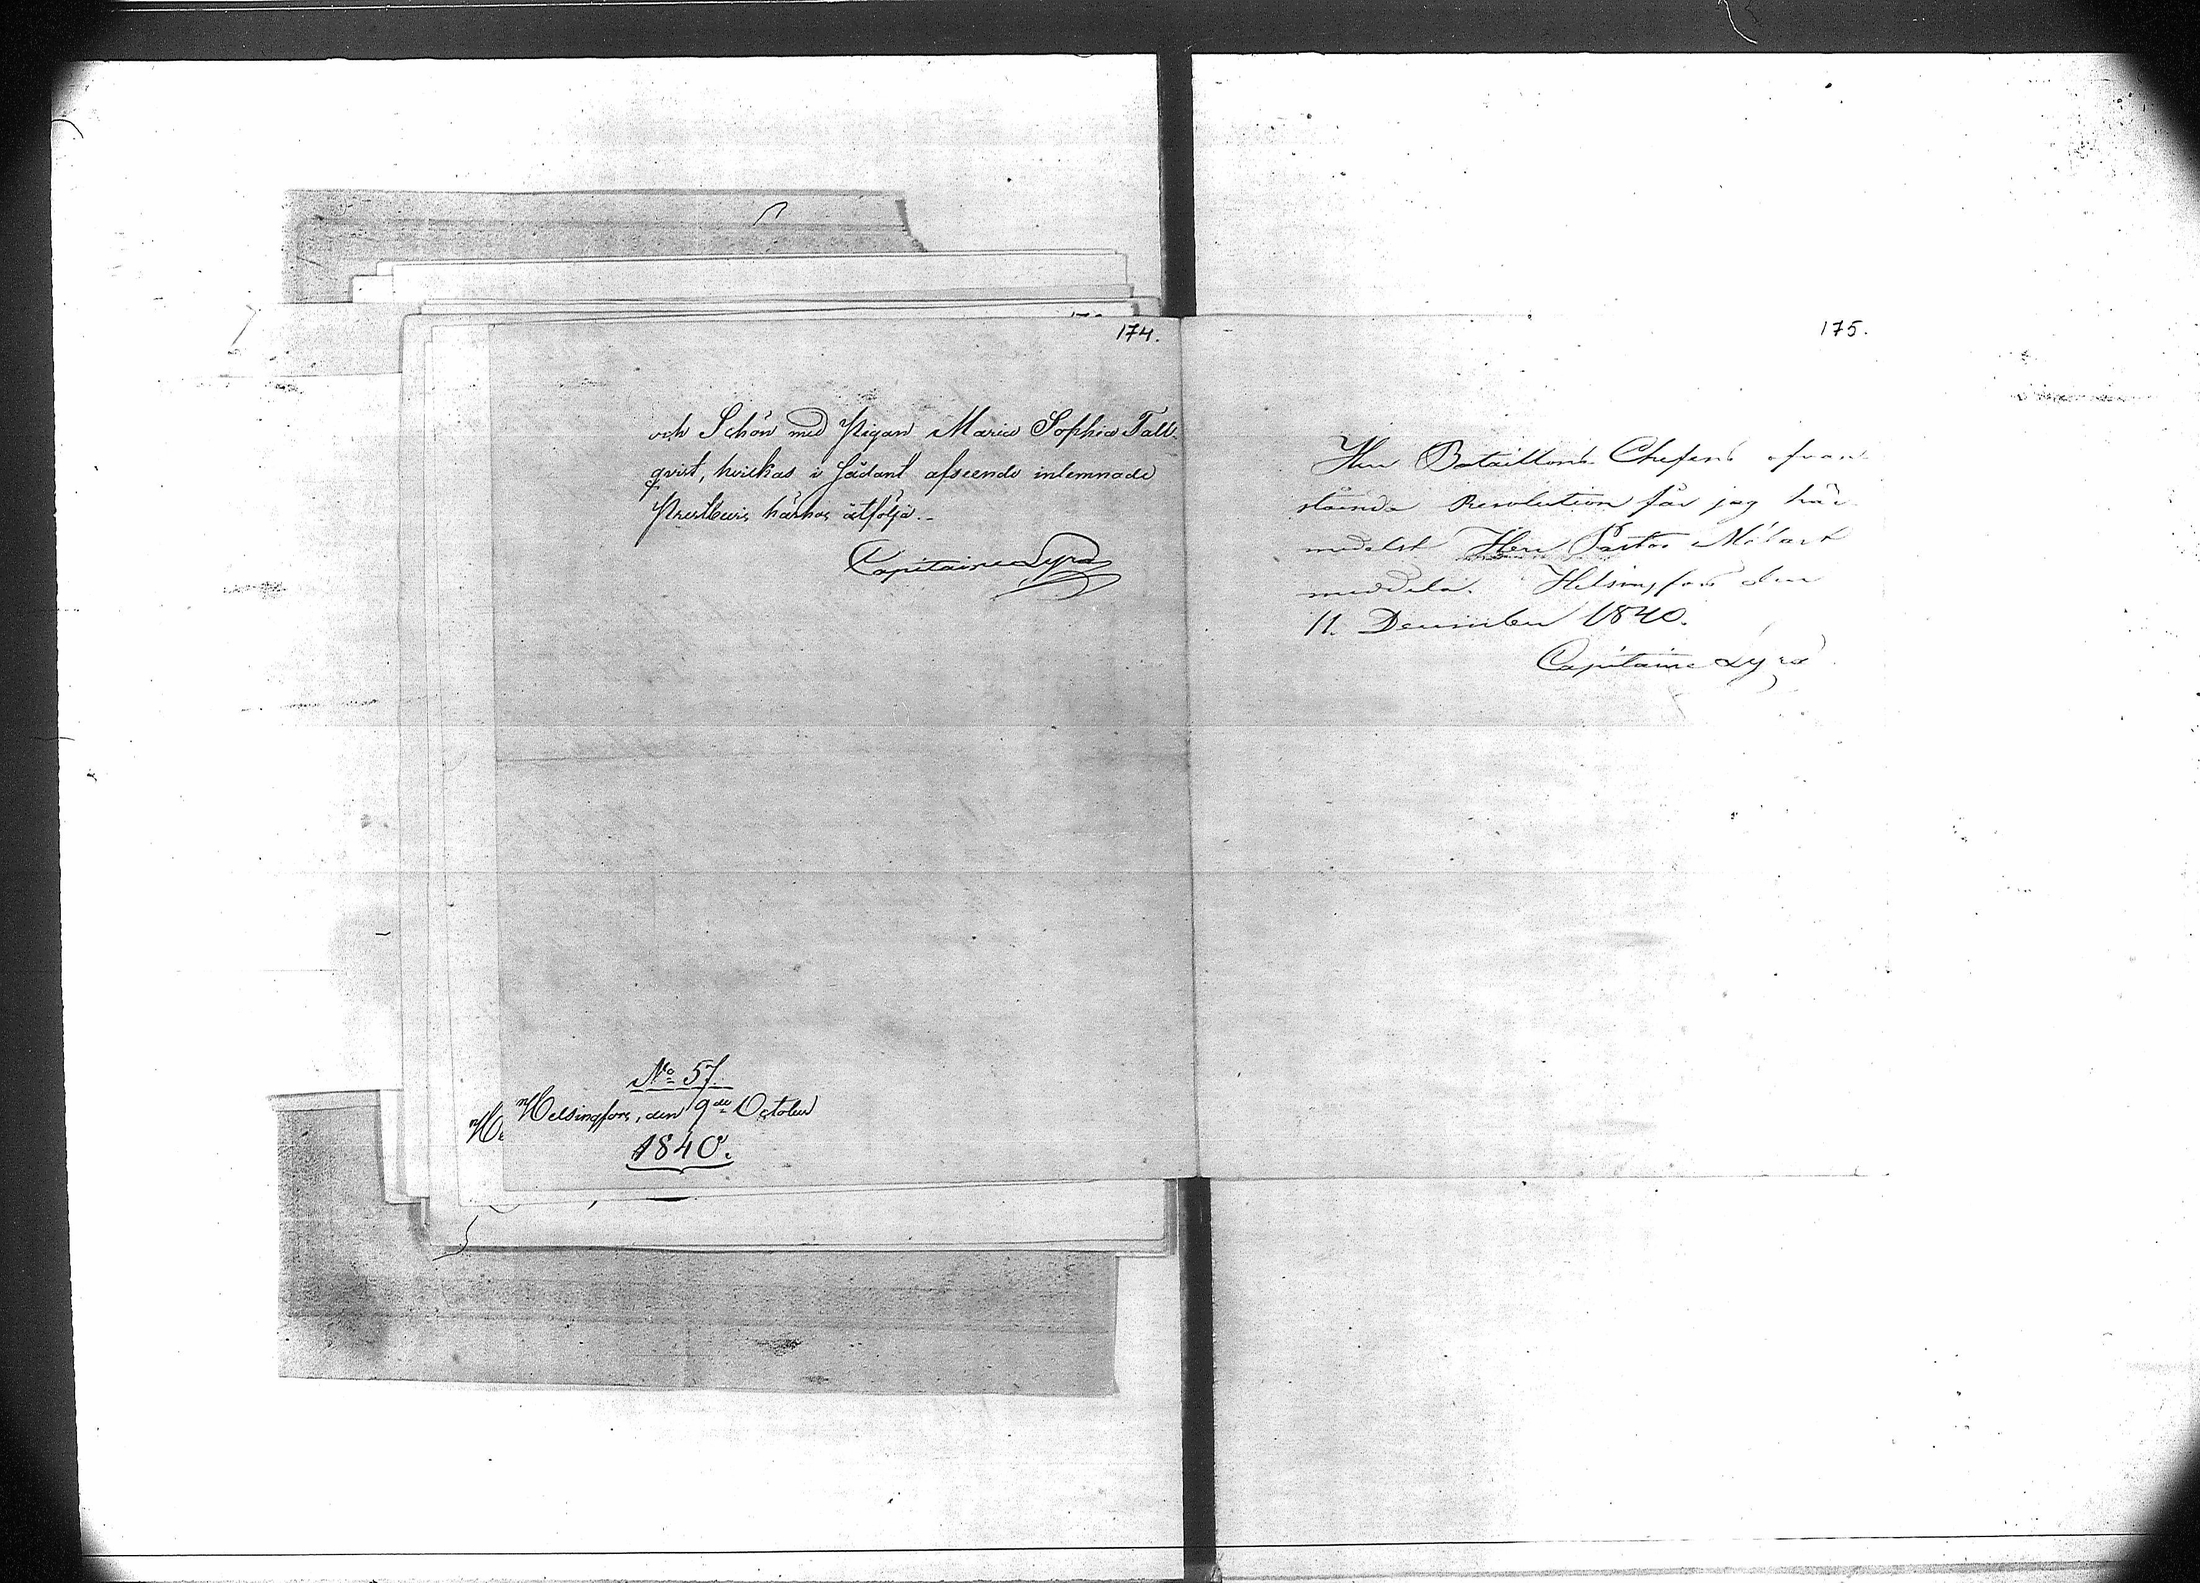 174.
och Schön med Pigan Maria Sophia Tall-
qvist, hvilkas i sådant afseende inlemnade
Prestbevis härhos åtfölja.-
Capitaine Lyra
No 57.
Helsingfors, den 9de October
1840.
He
175.
Herr Bataillons Chefens ofvan-
stående Resolution får jag här-
medelst Herr Pastor
meddela. Helsingfors den
11. December 1840.
Capitaine Lyra